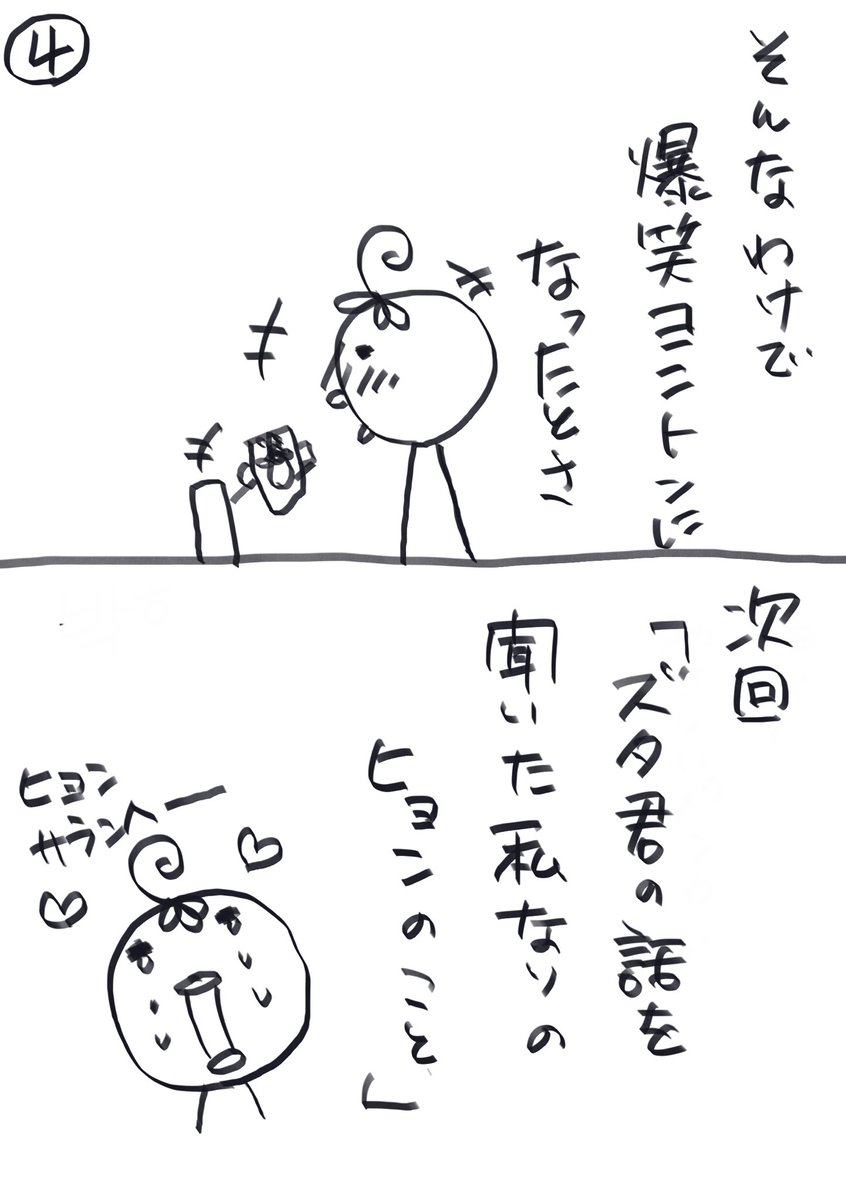 ④
そんなわけで
爆笑ヨントンに
なったとさ
次回
「ズタ君の話を
聞いた私なりの
ヒョンのこと」
ヒョン
サランヘー